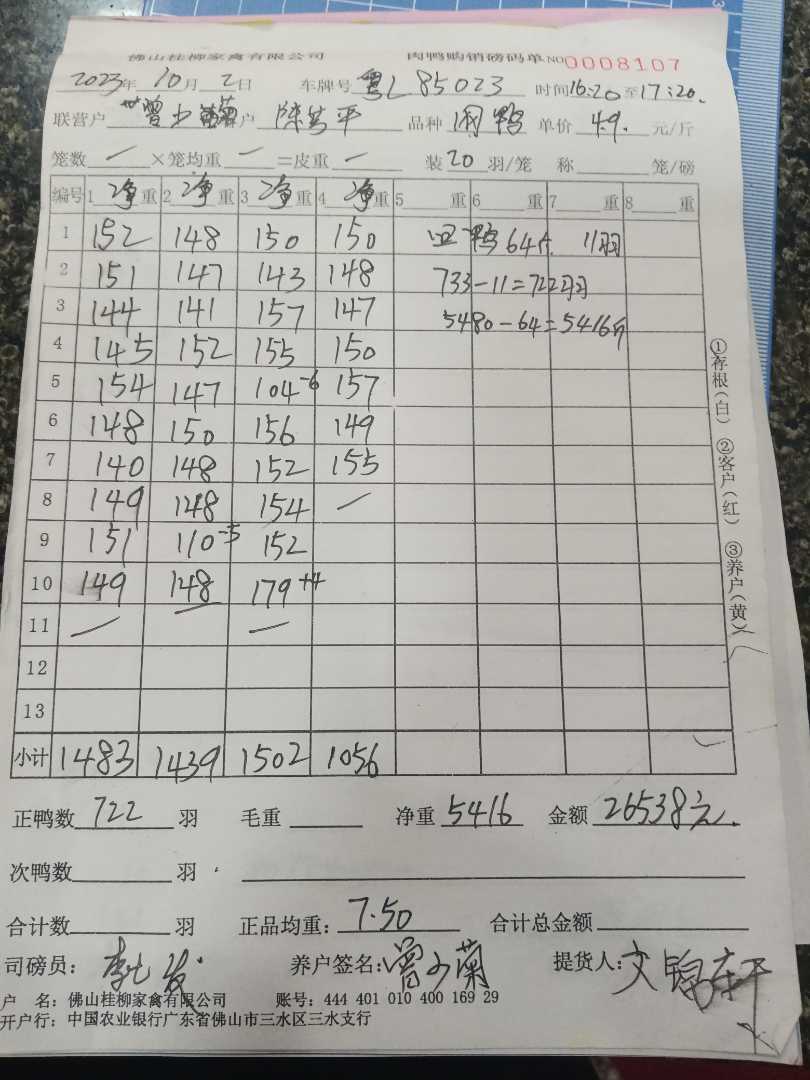 佛山桂柳家禽有限公司 肉鸭购销磅码单 NO 0008107
2023年10月2日 车牌号 粤L85023 时间16:20至17:20.
联营户 曾少菊 户 品种 肉鸭 单价 4.9. 元/斤
笼数 — ×笼均重 — =皮重 — 装 20 羽/笼 称 笼/磅
编号 1 净 重 2 净 重 3 净 重 4 净 重 5 重 6 重 7 重 8 重
1 152 148 150 150 鸭64斤 11羽
2 151 147 143 148 733-11=722羽
3 144 141 157 147 5480-64=5416斤
4 145 152 155 150
5 154 147 104-6 157
6 148 150 156 149
7 140 148 152 155
8 149 148 154 —
9 151 110-5 152
10 149 148 179+4
11 — —
12
13
小计 1483 1439 1502 1056
正鸭数 722 羽 毛重 净重 5416 金额 26538元.
次鸭数 羽
合计数 羽 正品均重: 7.50 合计总金额
司磅员: 养户签名: 曾少菊 提货人: 文锦轩
户 名: 佛山桂柳家禽有限公司 账号: 444 401 010 400 169 29
开户行: 中国农业银行广东省佛山市三水区三水支行
①存根(白) ②客户(红) ③养户(黄)